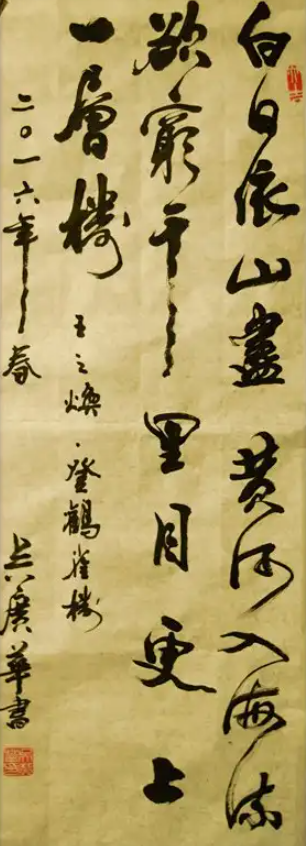 白日依山盡 黄河入海流
欲窮千里目更上
一層樓 王之煥·登鶴雀樓
二〇一六年春 廣華書